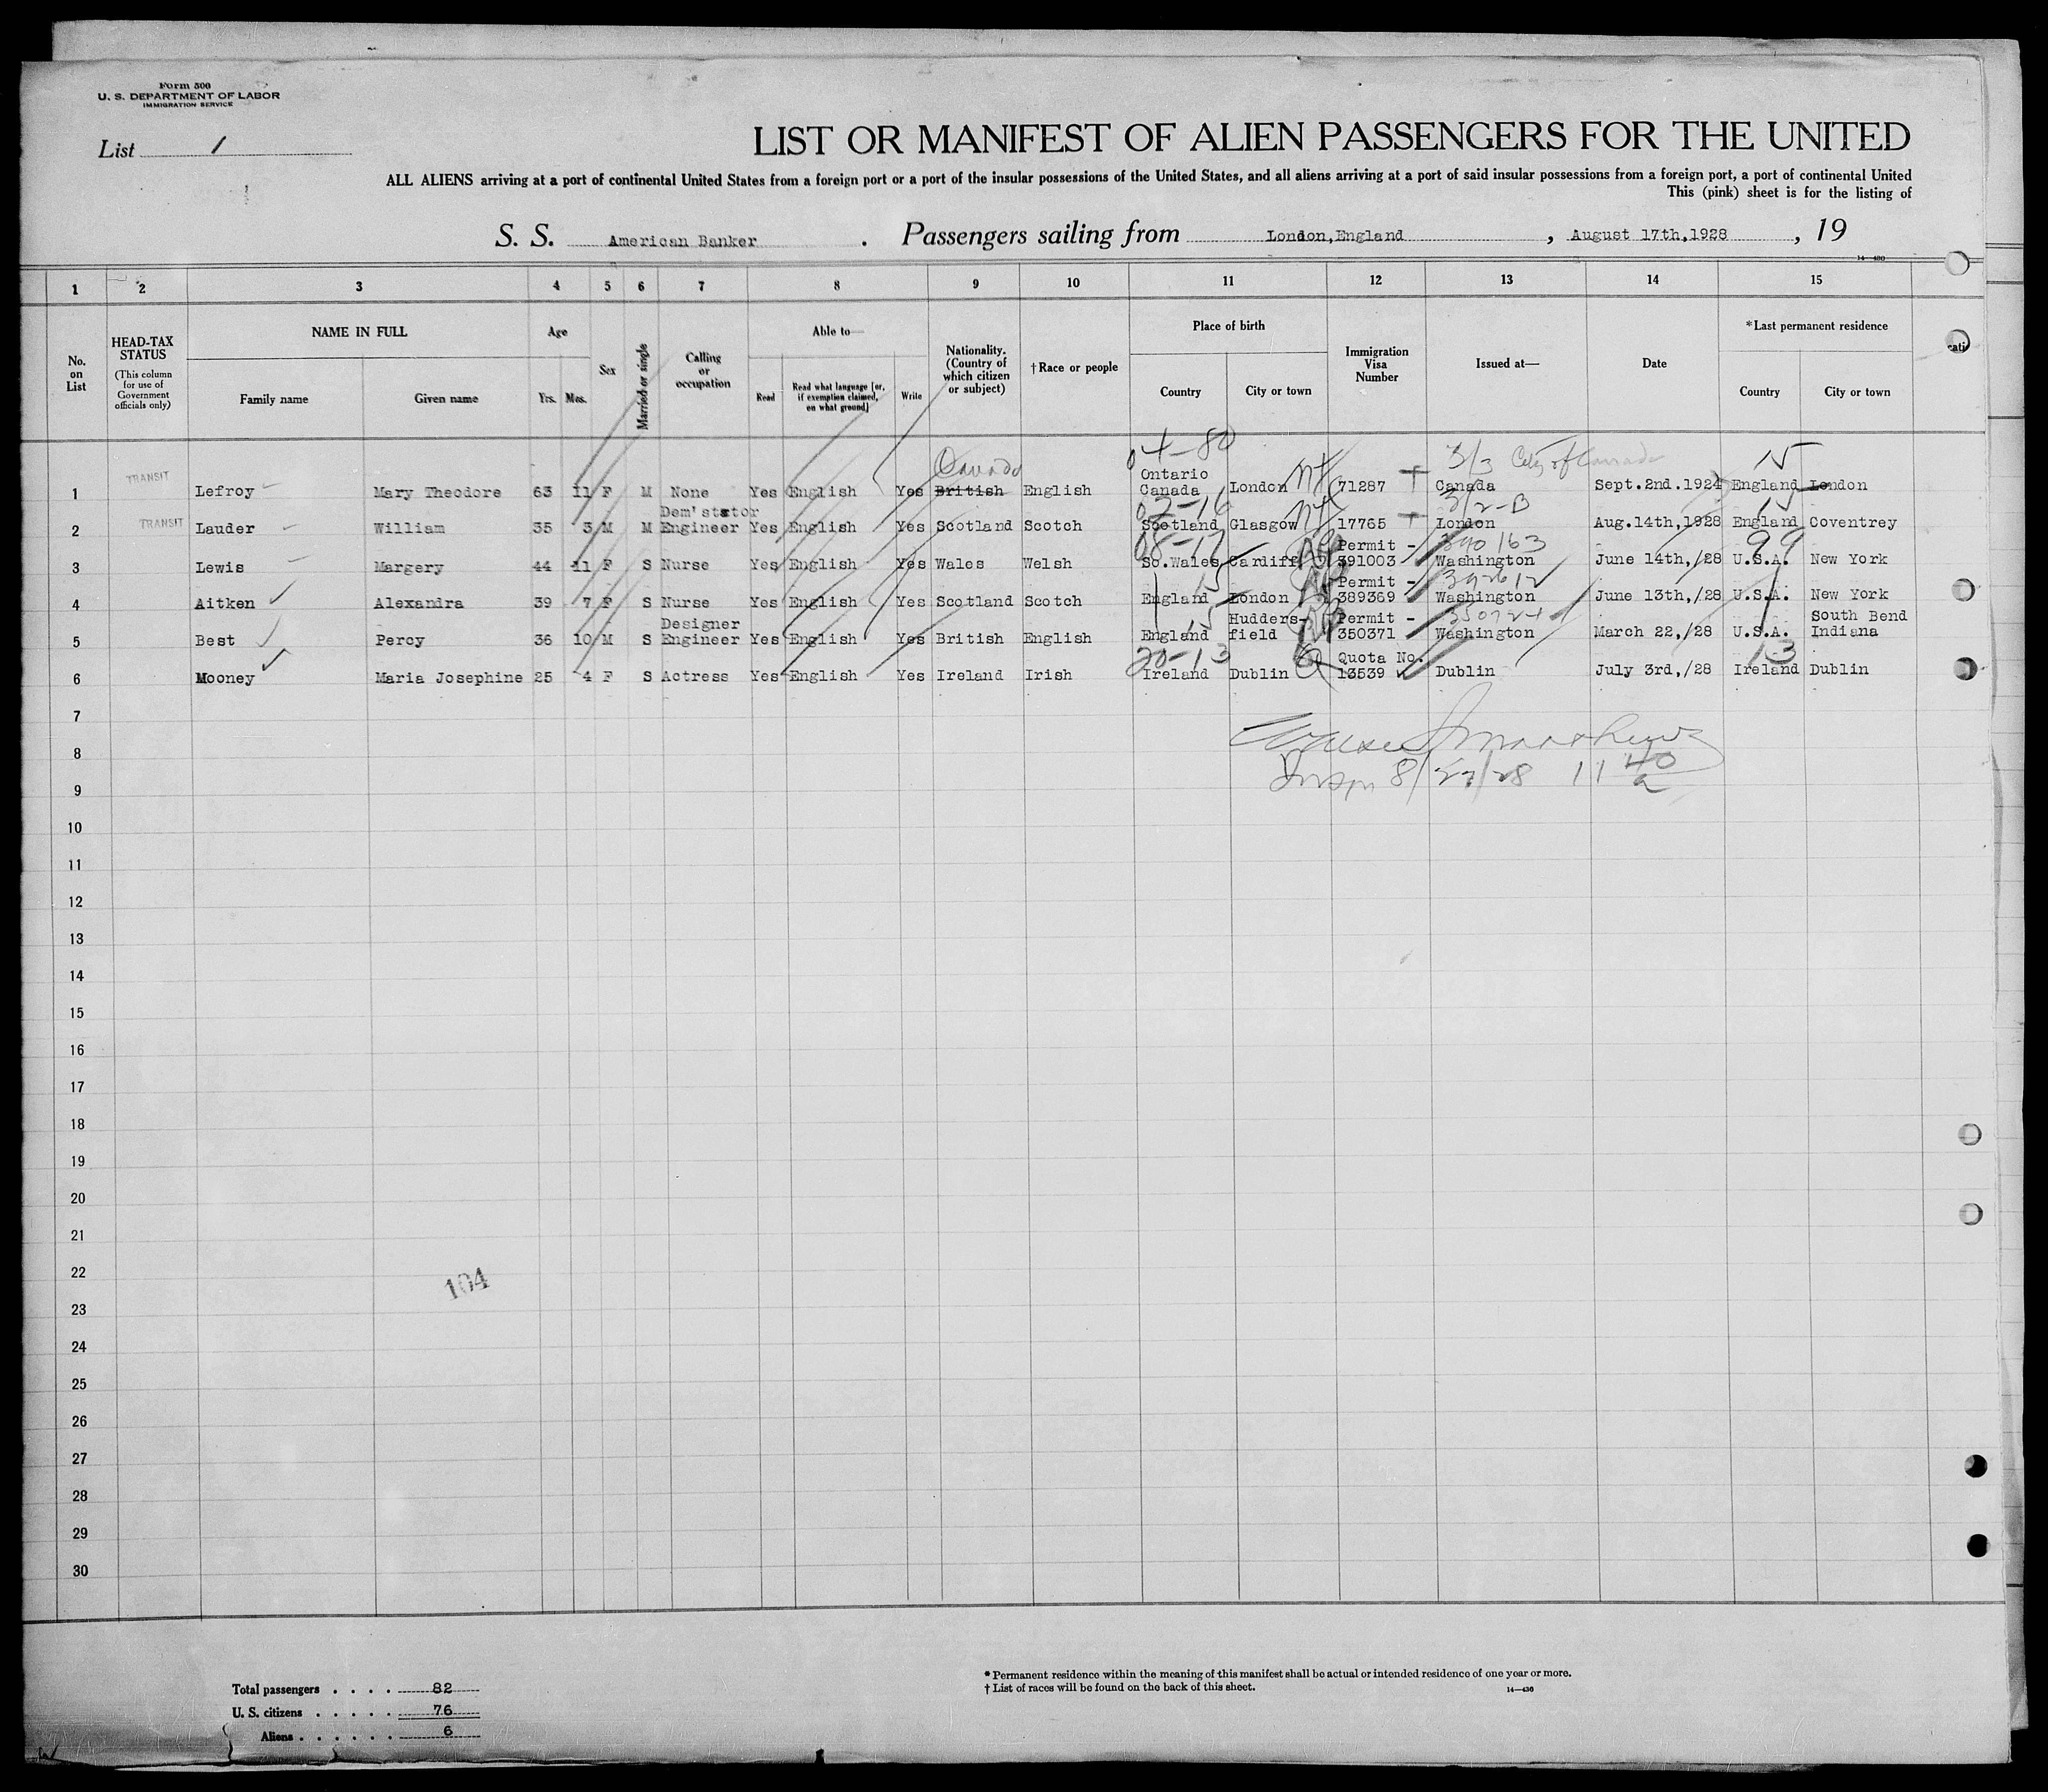 Form 500
U. S. DEPARTMENT OF LABOR
IMMIGRATION SERVICE
List 1
LIST OR MANIFEST OF ALIEN PASSENGERS FOR THE UNITED
ALL ALIENS arriving at a port of continental United States from a foreign port or a port of the insular possessions of the United States, and all aliens arriving at a port of said insular possessions from a foreign port, a port of continental United
This (pink) sheet is for the listing of
S. S. American Banker . Passengers sailing from London,England , August 17th,1928 , 19
14—430
1 2 3 4 5 6 7 8 9 10 11 12 13 14 15
No. on List
HEAD-TAX STATUS
(This column for use of Government officials only)
NAME IN FULL
Family name Given name
Age
Yrs. Mos.
Sex
Married or single
Calling or occupation
Able to—
Read
Read what language [or, if exemption claimed, on what ground]
Write
Nationality. (Country of which citizen or subject)
†Race or people
Place of birth
Country City or town
Immigration Visa Number
Issued at—
Date
*Last permanent residence
Country City or town
04-80 3/3 City of Canada 15
TRANSIT Canada Ontario
1 Lefroy Mary Theodore 63 11 F M None Yes English Yes British English Canada London 71287 Canada Sept.2nd.1924 England London
Dem'stator 02-16 3/2-B 15
TRANSIT
2 Lauder William 35 3 M M Engineer Yes English Yes Scotland Scotch Scotland Glasgow 17765 London Aug.14th,1928 England Coventrey
08-17 Permit - 390163 99
3 Lewis Margery 44 11 F S Nurse Yes English Yes Wales Welsh So.Wales Cardiff 391003 Washington June 14th,/28 U.S.A. New York
15 Permit - 392612
4 Aitken Alexandra 39 7 F S Nurse Yes English Yes Scotland Scotch England London 389369 Washington June 13th,/28 U.S.A. New York
Designer 15 Hudders- Permit - South Bend
5 Best Percy 36 10 M S Engineer Yes English Yes British English England field 350371 Washington March 22,/28 U.S.A. Indiana
20-13 Quota No. 13
6 Mooney Maria Josephine 25 4 F S Actress Yes English Yes Ireland Irish Ireland Dublin Q 13539 Dublin July 3rd,/28 Ireland Dublin
7
8
Insp 8/27/28 11 40 a
9
10
11
12
13
14
15
16
17
18
19
20
21
22
104
23
24
25
26
27
28
29
30
Total passengers . . . . 82
U. S. citizens . . . . . 76
Aliens . . . . . . 6
* Permanent residence within the meaning of this manifest shall be actual or intended residence of one year or more.
† List of races will be found on the back of this sheet.
14—430